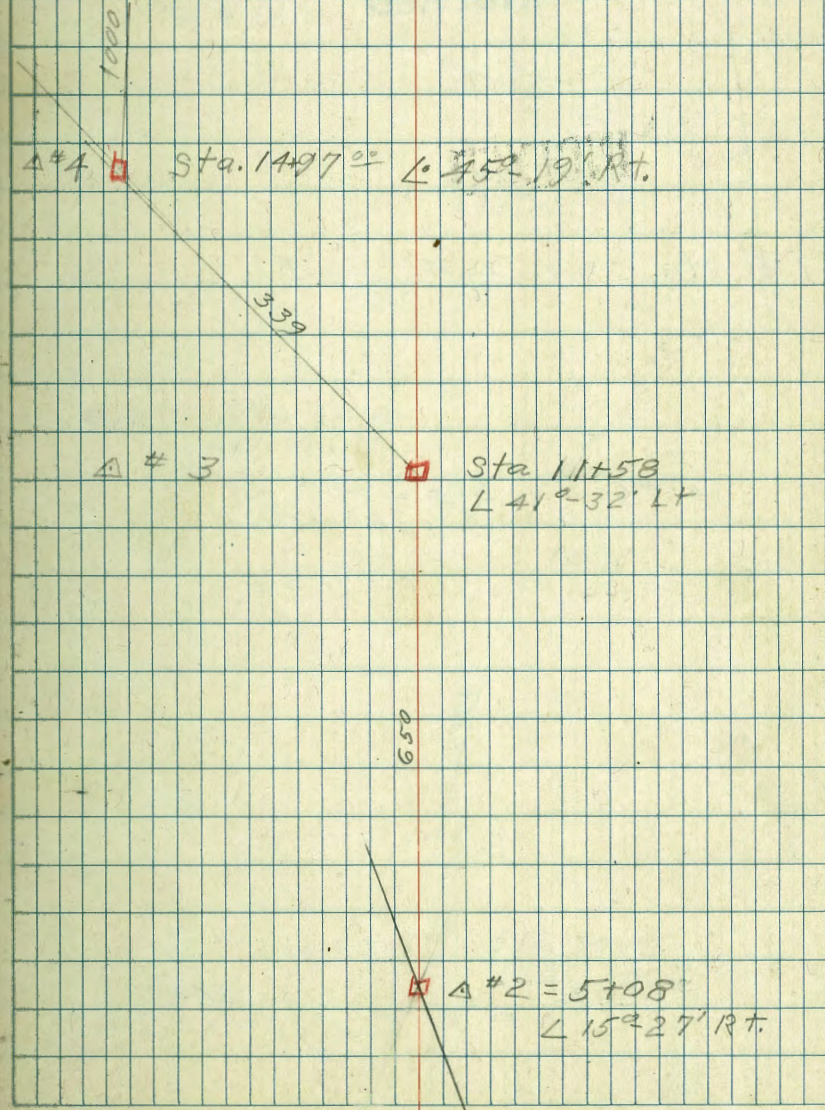 1000
△#4 Sta. 14+97 ºº ∠ 45º-19' Rt.
339
△ # 3 Sta 11+58
∠ 41º-32' Lt
650
△ #2 = 5+08
∠ 15º-27' Rt.